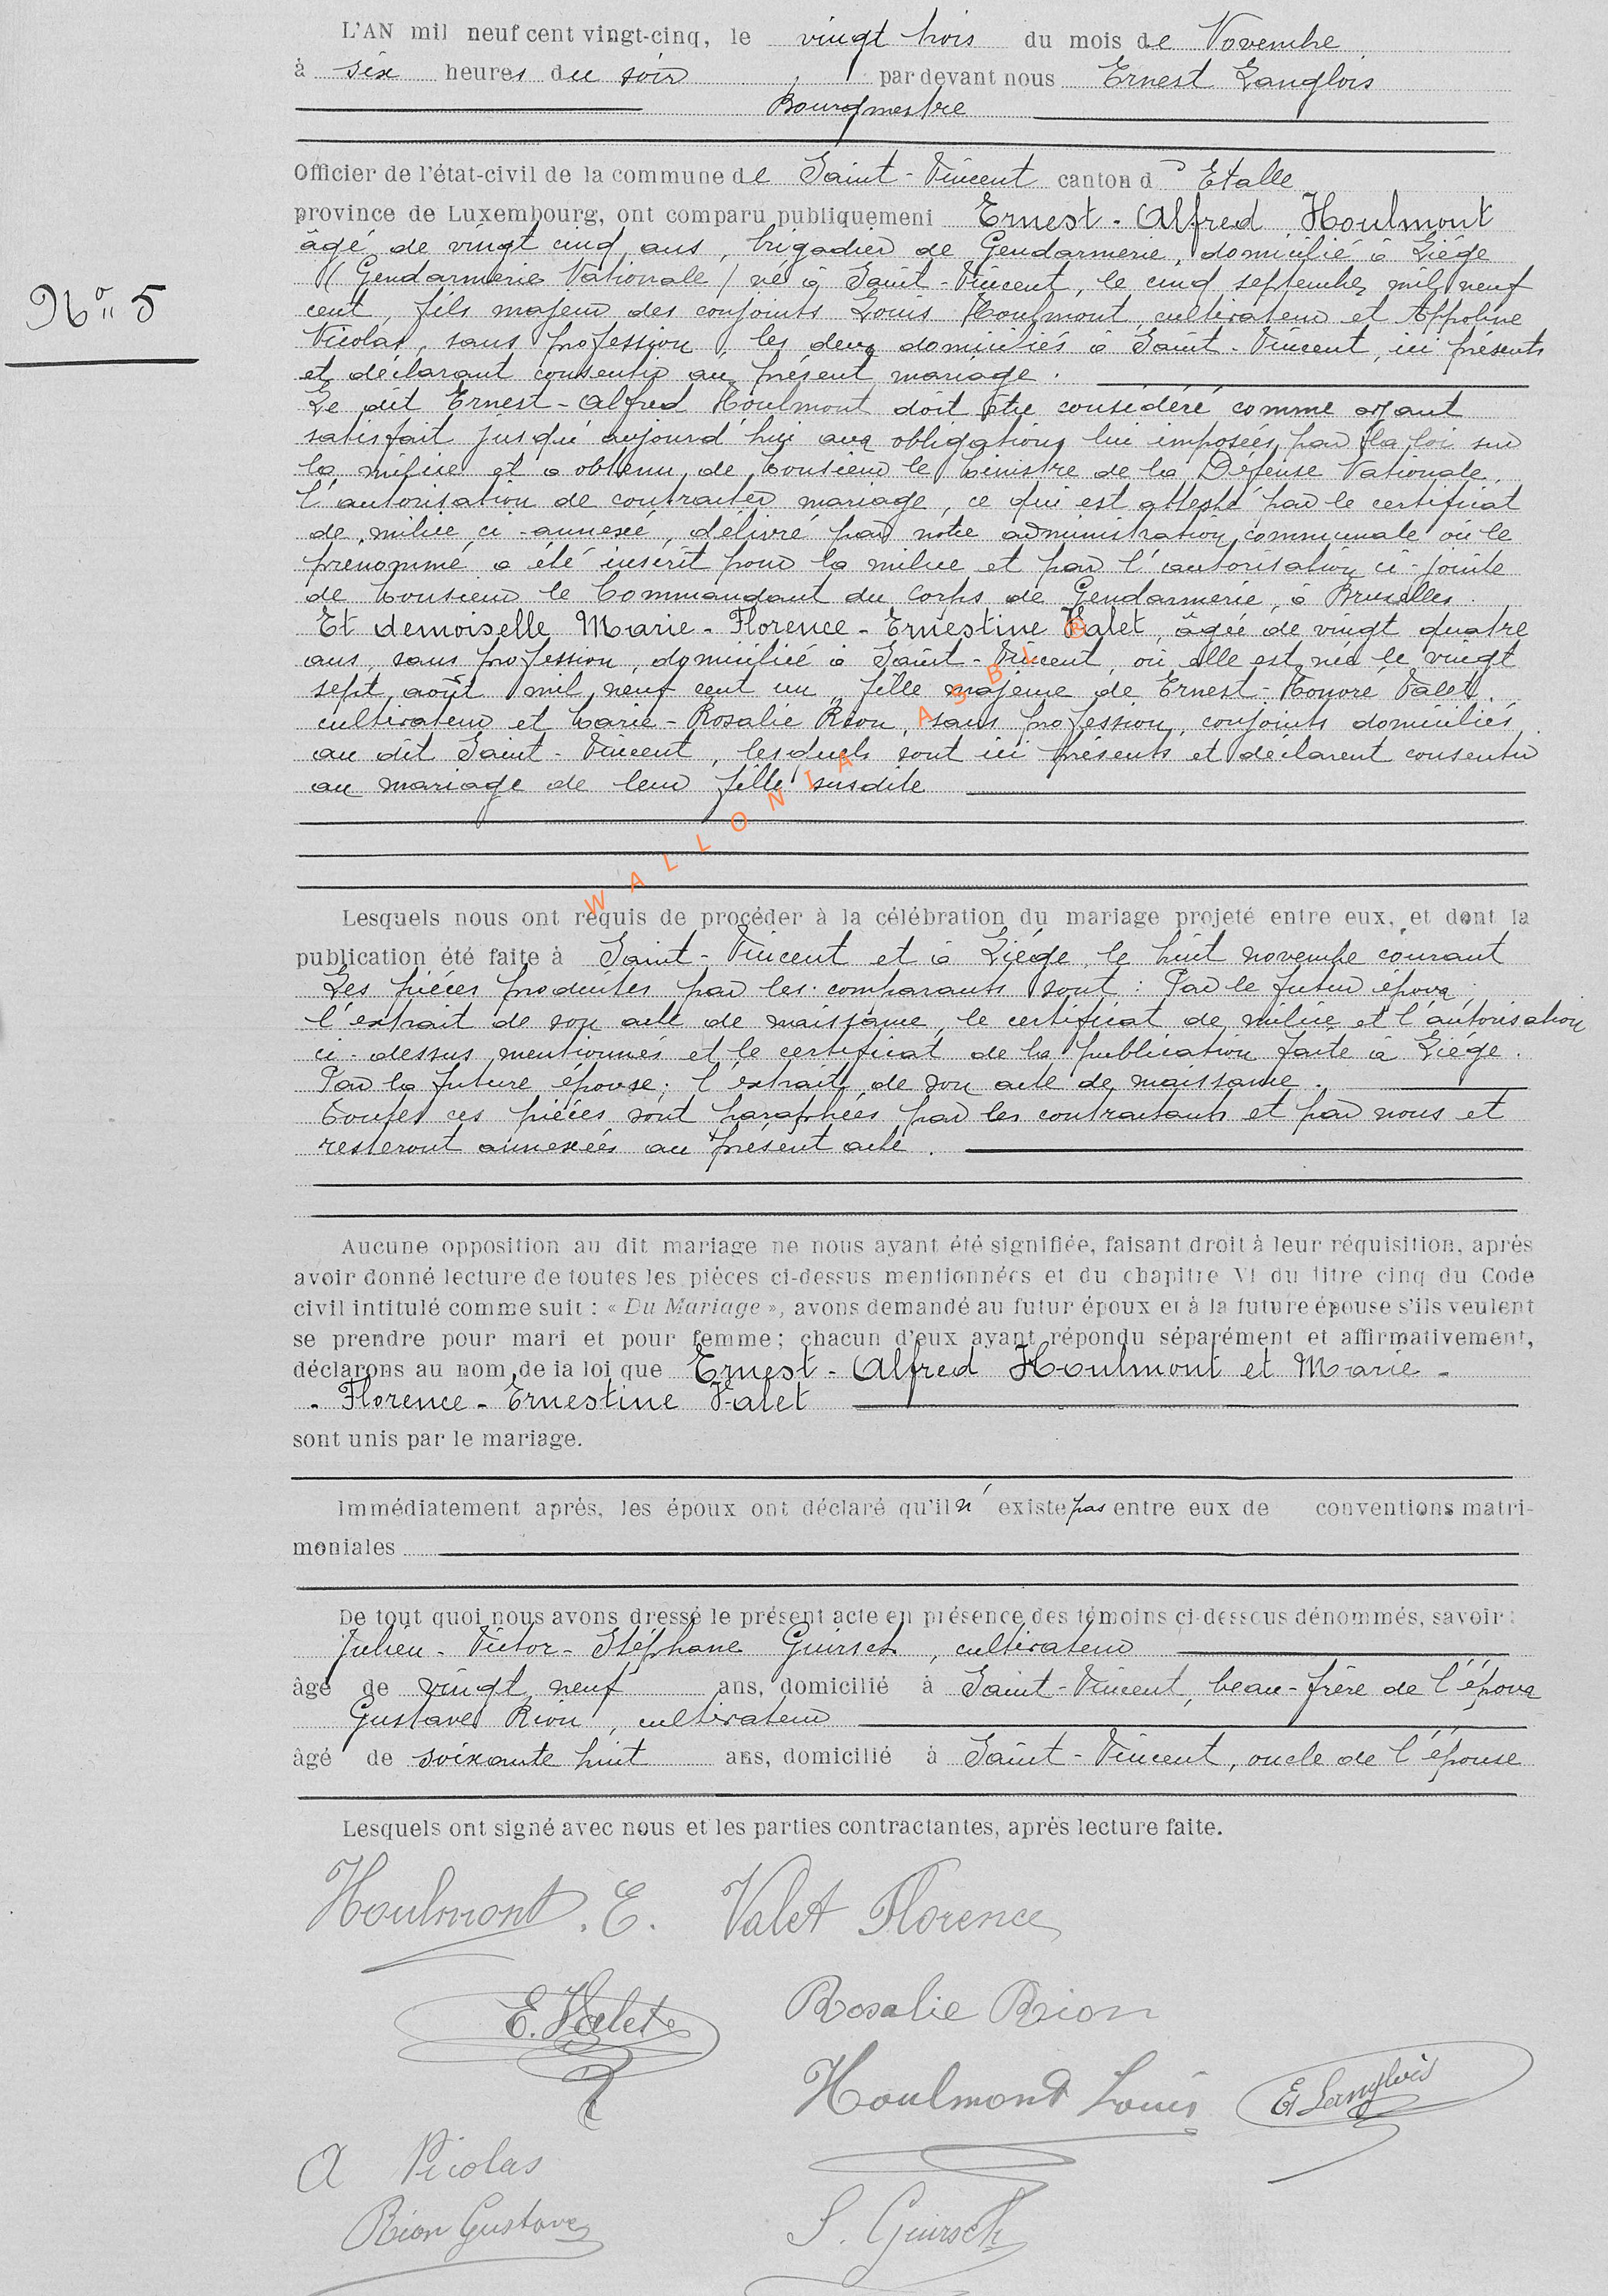 L'AN mil neuf cent vingt-cinq, le vingt trois du mois de Novembre
à six heures du soir par devant nous Ernest Langlois
Bourgmestre
Officier de l'état-civil de la commune de Saint-Vincent canton d'Etalle
province de Luxembourg, ont comparu publiquement Ernest-Alfred Houlmont
âgé de vingt cinq ans, brigadier de Gendarmerie, domicilié à Liége
(Gendarmerie Nationale) né à Saint-Vincent, le cinq septembre mil neuf
N° 5
cent, fils majeur des conjoints Louis Houlmont, cultivateur et Appoline
Nicolas, sans profession, les deux domiciliés à Saint-Vincent, ici présents
et déclarant consentir au présent mariage.
Le dit Ernest-Alfred Houlmont doit être considéré comme ayant
satisfait jusqu'aujourd'hui aux obligations lui imposées par la loi sur
la milice et a obtenu de Monsieur le Ministre de la Défense Nationale,
l'autorisation de contracter mariage, ce qui est attesté par le certificat
de milice ci-annexé, délivré par notre administration communale où le
prénommé a été inscrit pour la milice et par l'autorisation ci-jointe
de Monsieur le Commandant du Corps de Gendarmerie, à Bruxelles.
Et demoiselle Marie-Florence-Ernestine Valet, âgée de vingt quatre
ans, sans profession, domiciliée à Saint-Vincent, où elle est née le vingt
sept août mil neuf cent un, fille majeure de Ernest-Honoré Valet,
cultivateur et Marie-Rosalie Rion, sans profession, conjoints domiciliés
au dit Saint-Vincent, lesquels sont ici présents et déclarent consentir
au mariage de leur fille susdite
WALLONIA ASBL ©
Lesquels nous ont requis de procéder à la célébration du mariage projeté entre eux, et dont la
publication été faite à Saint-Vincent et à Liége, le huit novembre courant
Les pièces produites par les comparants sont: Par le futur époux
l'extrait de son acte de naissance, le certificat de milice et l'autorisation
ci-dessus mentionnés et le certificat de la publication faite à Liége.
Par la future épouse: l'extrait de son acte de naissance.
Toutes ces pièces sont paraphées par les contractants et par nous et
resteront annexées au présent acte.
Aucune opposition au dit mariage ne nous ayant été signifiée, faisant droit à leur réquisition, après
avoir donné lecture de toutes les pièces ci-dessus mentionnées et du chapitre VI du titre cinq du Code
civil intitulé comme suit : « Du Mariage », avons demandé au futur époux et à la future épouse s'ils veulent
se prendre pour mari et pour femme; chacun d'eux ayant répondu séparément et affirmativement,
déclarons au nom de la loi que Ernest-Alfred Houlmont et Marie-
-Florence-Ernestine Valet
sont unis par le mariage.
Immédiatement après, les époux ont déclaré qu'il n'existe pas entre eux de conventions matri-
moniales
De tout quoi nous avons dressé le présent acte en présence des témoins ci-dessous dénommés, savoir :
Julien-Victor-Stéphane Guirsch, cultivateur
âgé de vingt neuf ans, domicilié à Saint-Vincent, beau-frère de l'époux
Gustave Rion, cultivateur
âgé de soixante huit ans, domicilié à Saint-Vincent, oncle de l'épouse
Lesquels ont signé avec nous et les parties contractantes, après lecture faite.
Houlmont. E. Valet Florence
E. Valet Rosalie Rion
Houlmont Louis E Langlois
A Nicolas
Rion Gustave S. Guirsch